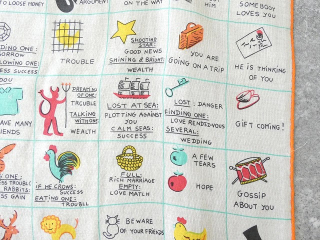 TO LOOSE MONEY
ARGUMENT
ON THE WAY
HIM
SOMEBODY
LOVES YOU
SORROW
SUCCESS
TROUBLE
SHOOTING
STAR:
GOOD NEWS
SHINING & BRIGHT:
WEALTH
YOU ARE
GOING ON A TRIP
HE IS THINKING
OF YOU
HAVE MANY
FRIENDS
DREAMING
OF ONE:
TROUBLE
TALKING
WITH ONE:
WEALTH
LOST AT SEA:
PLOTTING AGAINST
YOU
CALM SEAS:
SUCCESS
LOST: DANGER
FINDING ONE:
LOVE RENDEZ-VOUS
SEVERAL:
WEDDING
GIFT COMING!
TROUBLE
RABBITS:
GAIN
IF HE CROWS:
SUCCESS
EATING ONE:
TROUBLE
FULL:
RICH MARRIAGE
EMPTY:
LOVE MATCH
A FEW
TEARS
HOPE
GOSSIP
ABOUT YOU
BEWARE
OF YOUR FRIENDS